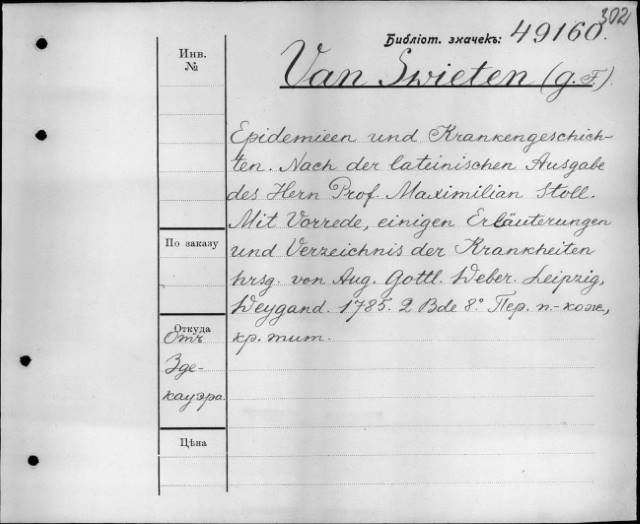 302
Библіот. значекъ: 49160.
Инв.
№
Van Swieten (g. F).
Epidemieen und Krankengeschich-
ten. Nach der lateinischen Ausgabe
des Hern Prof. Maximilian Stoll.
Mit Vorrede, einigen Erläuterungen
По заказу
und Verzeichnis der Krankheiten
hrsg. von Aug. Gottl. Weber. Leipzig,
Weygand. 1785. 2 Bde 8° Пер. п.-кож.,
Откуда
Отъ
кр. тит.
Зде-
кауэра.
Цѣна